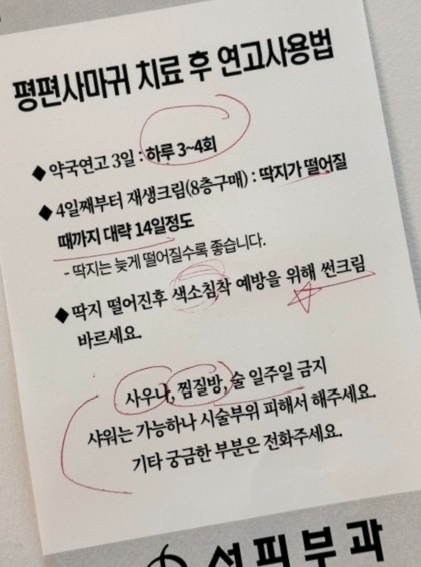 평편사마귀 치료 후 연고사용법
◆ 약국연고 3일 : 하루 3~4회
◆ 4일째부터 재생크림(8층구매) : 딱지가 떨어질
때까지 대략 14일정도
- 딱지는 늦게 떨어질수록 좋습니다.
◆ 딱지 떨어진후 색소침착 예방을 위해 썬크림
바르세요.
사우나, 찜질방, 술 일주일 금지
샤워는 가능하나 시술부위 피해서 해주세요.
기타 궁금한 부분은 전화주세요.
피부과